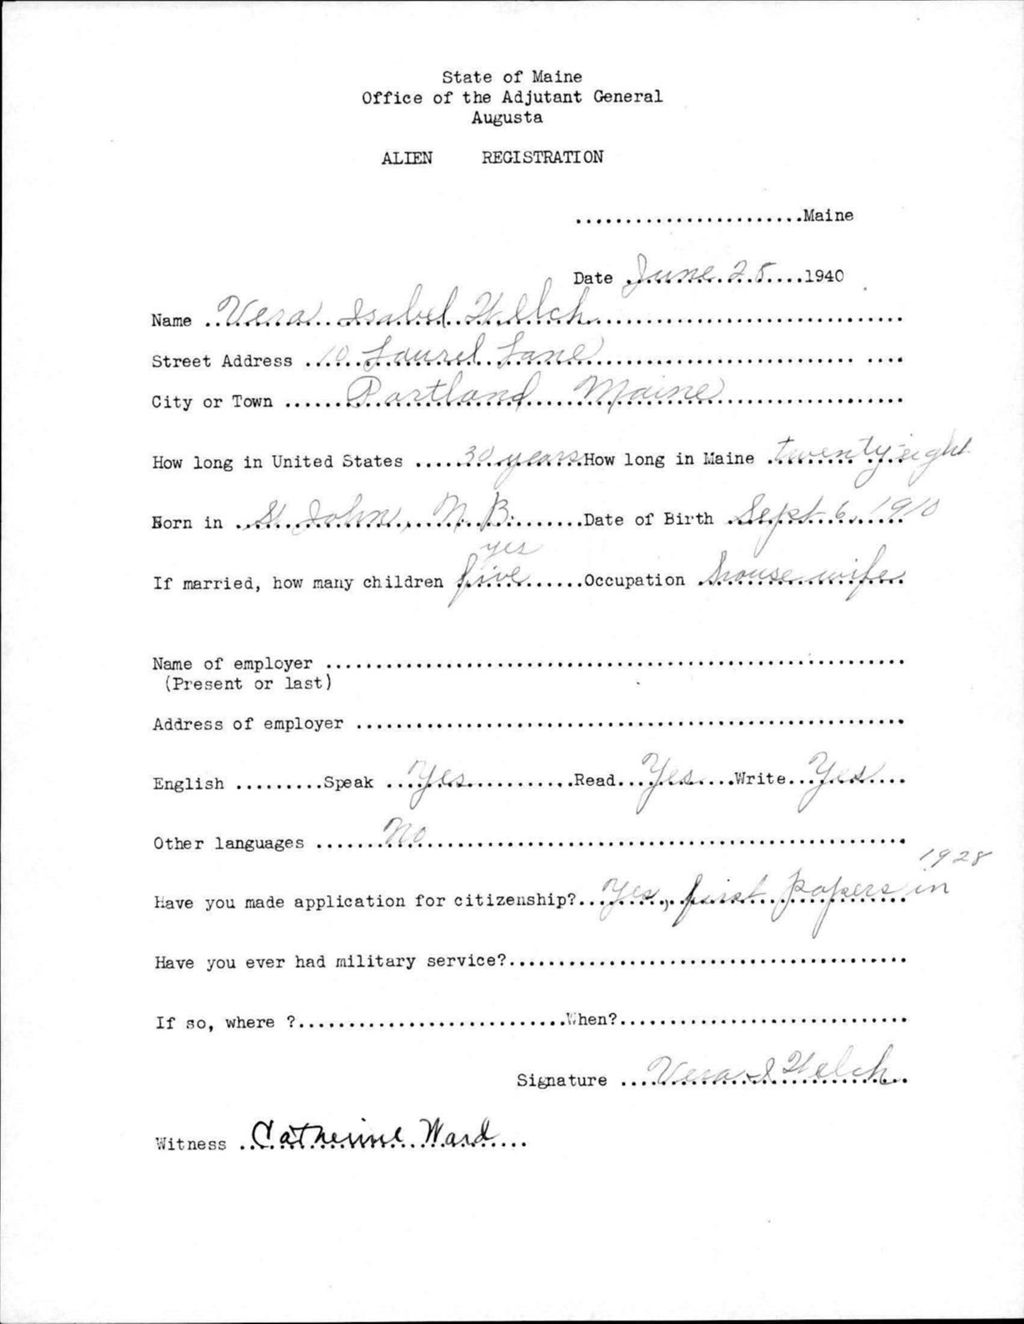 State of Maine
Office of the Adjutant General
Augusta
ALIEN REGISTRATION
.......................Maine
Date June 28 1940
Name Vera Isabel Welch
Street Address 10 Laurel Lane
City or Town Portland Maine
How long in United States 30 years How long in Maine twenty-eight
Born in St. John, N. B. Date of Birth Sept 6, 1910
yes
If married, how many children five Occupation house wife
Name of employer
(Present or last)
Address of employer
English .........Speak Yes Read Yes Write Yes
Other languages No
1928
Have you made application for citizenship? Yes, first papers in
Have you ever had military service?
If so, where ? When?
Signature Vera I Welch
Witness Catherine Ward